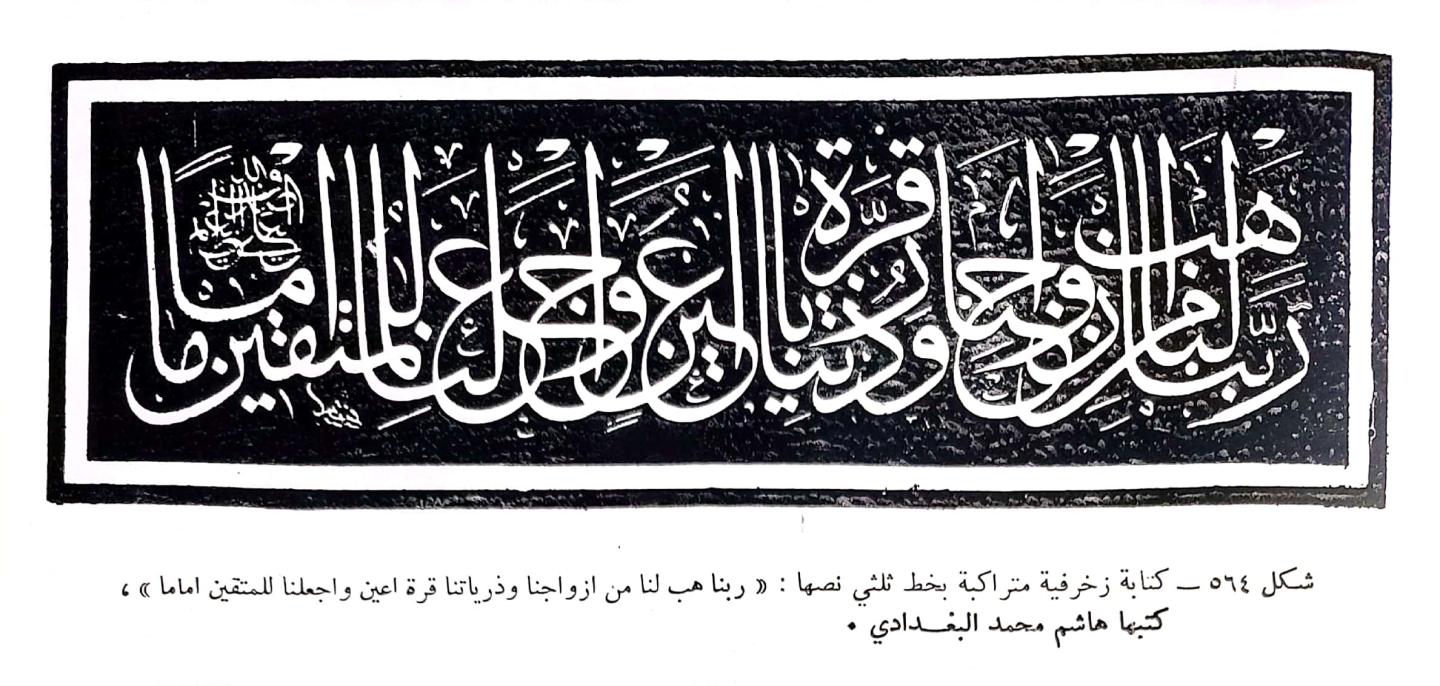 ربنا هب لنا من أزواجنا وذرياتنا قرة أعين واجعلنا للمتقين إماما
شكل ٥٦٤ – كتابة زخرفية متراكبة بخط ثلثي نصها : « ربنا هب لنا من ازواجنا وذرياتنا قرة اعين واجعلنا للمتقين اماما » ،
كتبها هاشم محمد البغدادي .